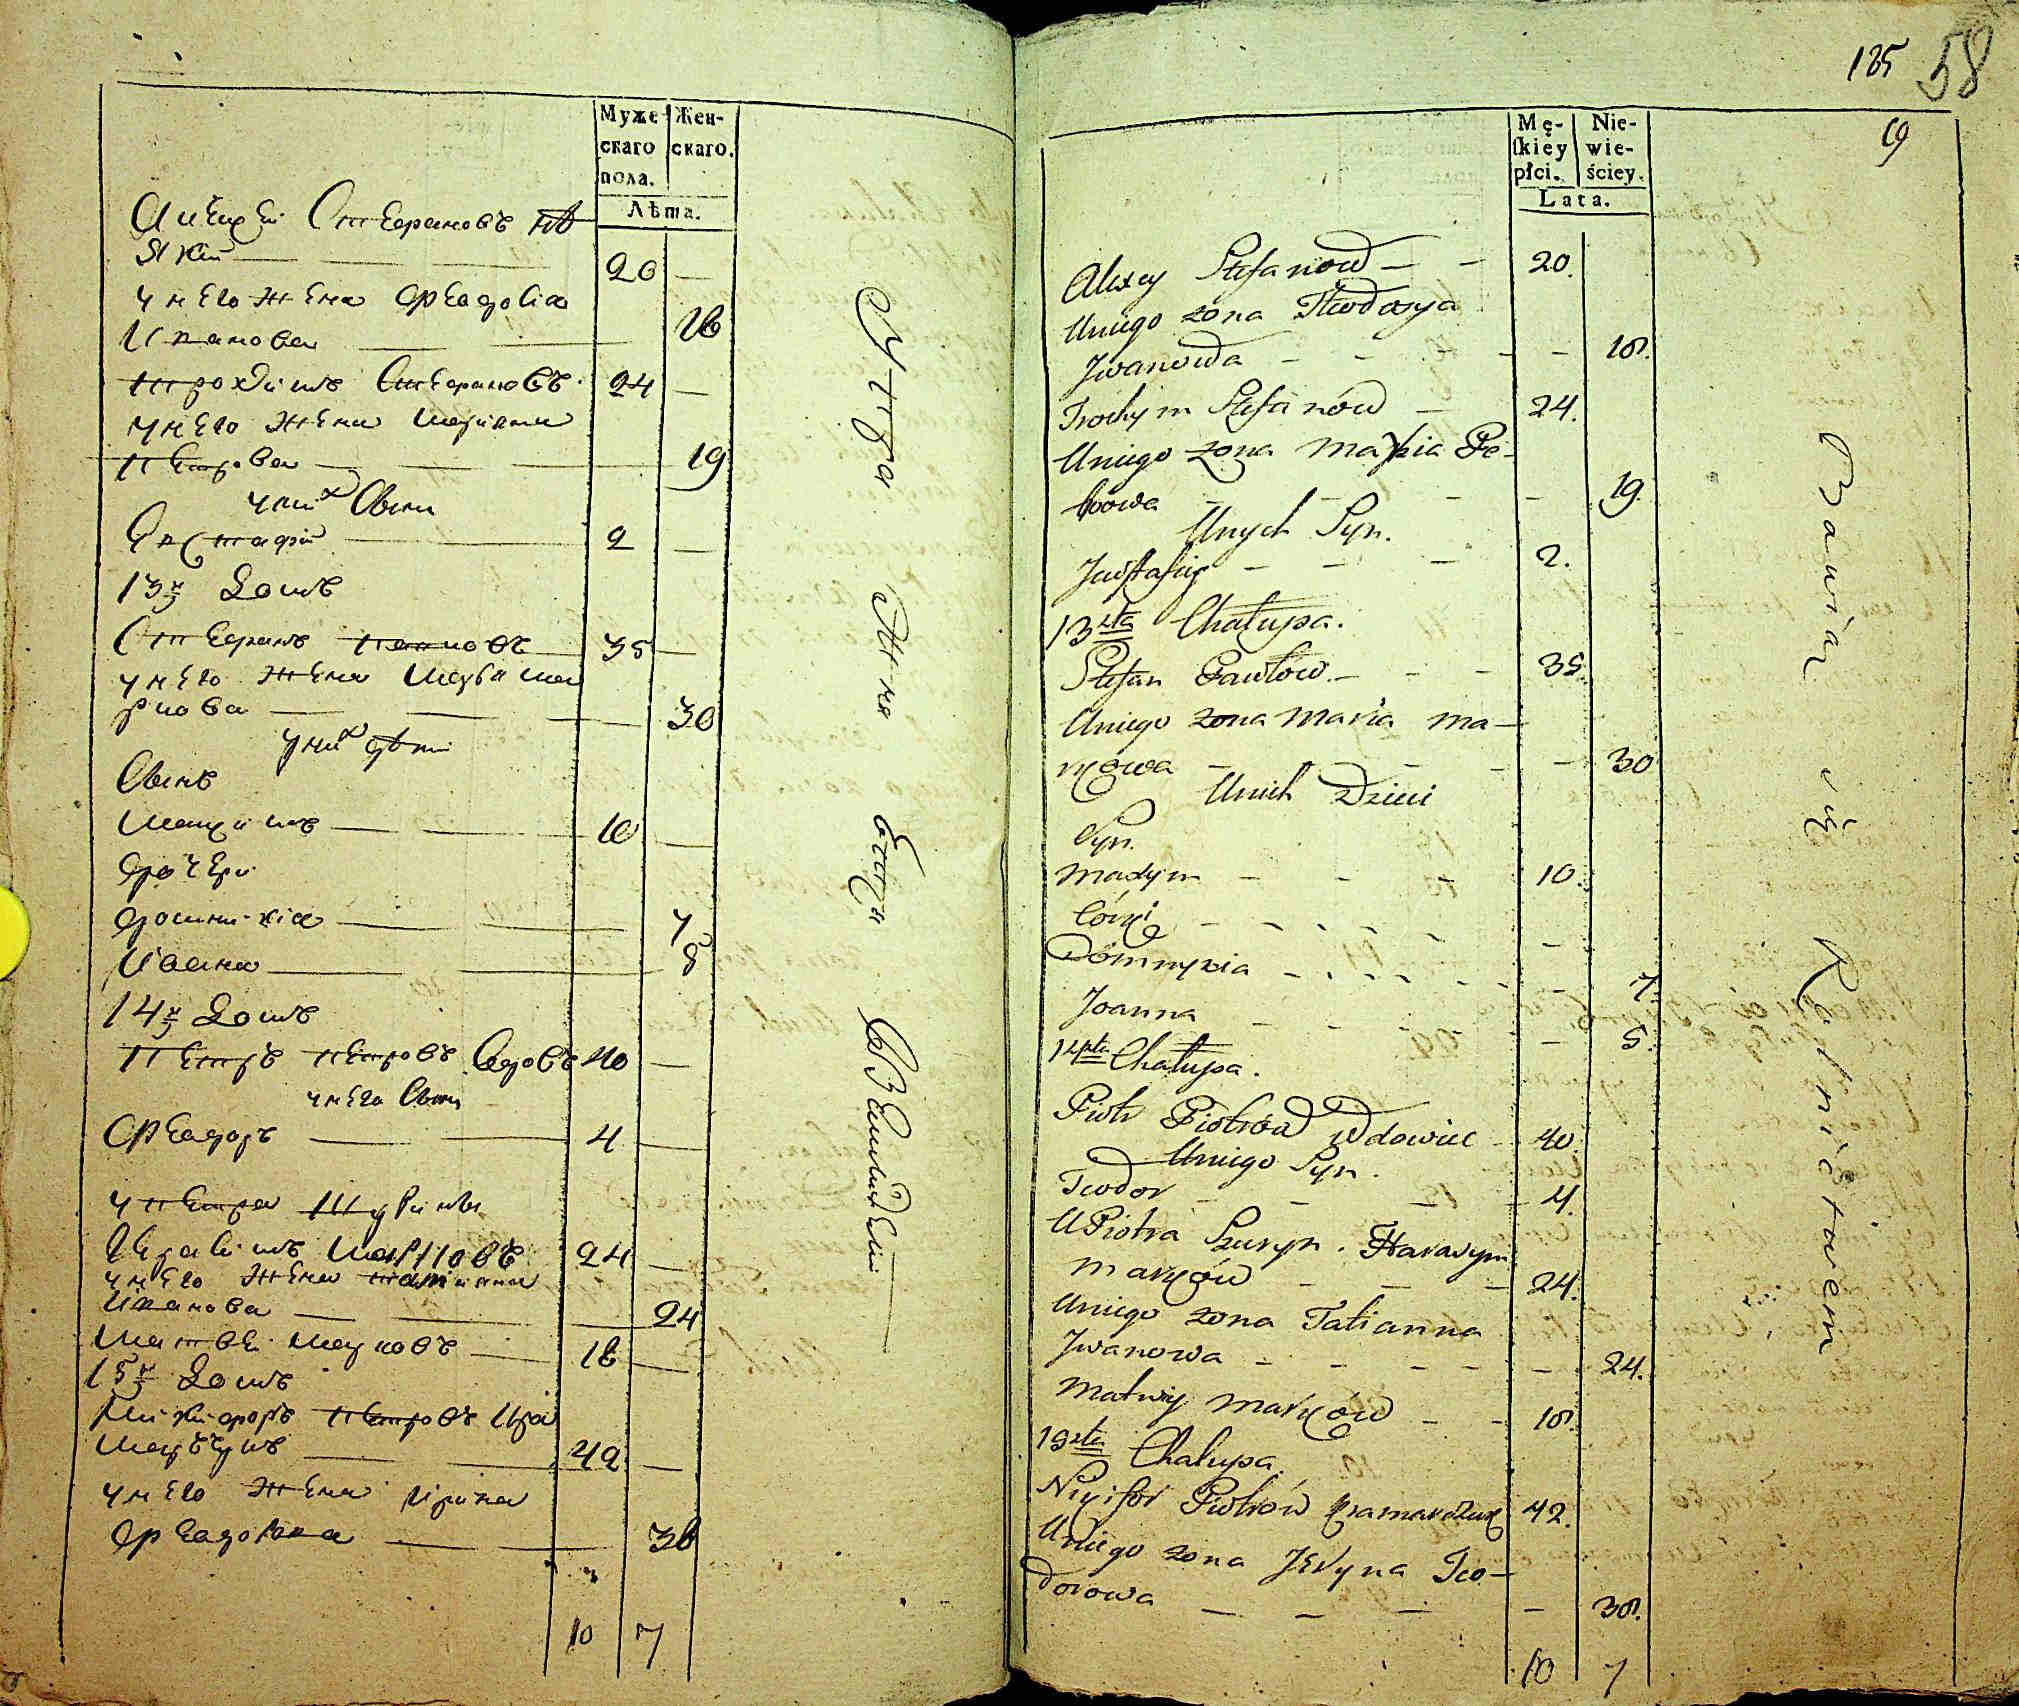 Муже-
скаго
пола.
Жен-
скаго.
Лѣта.
Алексѣй Стефановъ
20
у него жена Феодосіа
Ивановa
18
Трохимъ Стефановъ
24
у него жена Маріана
Петрова
19
у них Сынъ
Евстафій
2
13й Домъ
Стефанъ Павловъ
35
у него жена Марья Ма
ркова
30
у них дѣти
Сынъ
Максимъ
10
Дочери
Домникіа
7
Иоанна
5
14й Домъ
Петръ Петровъ вдовъ
40
у него Сынъ
Феодоръ
4
у Петра Шуринъ
Герасимъ Марковъ
24
у него жена Татіанна
Иванова
24
Матвей Марковъ
18
15й Домъ
Никифоръ Петровъ Кра
марчукъ
42
у него жена Ирина
Феодорова
38
10 7
живя въ Земледелѣ
185 58
19
Mę-
ſkiey
płci.
Nie-
wie-
ściey.
Lata.
Alexey Stefanow
20.
Uniego zona Theodosya
Jwanowa
18.
Trochym Stefanów
24.
Uniego zona Maryia Pe-
trowa
19.
Unych Syn.
Jewstafiey
2.
13sta Chałupa.
Stefan Pawłów
35.
Uniego zona Maria Ma-
rkowa
30
Unich Dzieci
Syn.
Maxym
10.
Córki
Domnykia
7.
Joanna
5.
14sta Chałupa.
Piotr Piotrów Wdowiec
40.
Uniego Syn.
Teodor
4.
U Piotra Szuryn. Harasym
Marków
24.
Uniego zona Tatianna
Jwanowa
24.
Matwiy Marków
18.
15sta Chałupa
Nikifor Piotrów Kramarczuk
42.
Uniego zona Jeryna Teo-
dorowa
38.
10 7
Bawią się Rolnictwem